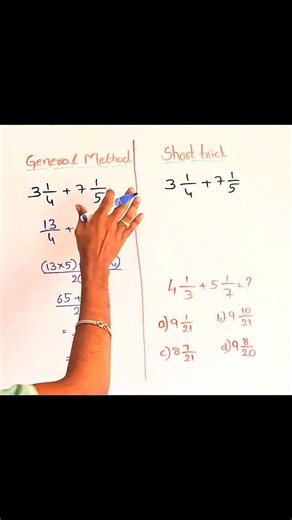 General Method
3 1/4 + 7 1/5
13/4 +
(13×5)
65 +
=
=
Short trick
3 1/4 + 7 1/5
4 1/3 + 5 1/7 = ?
a) 9 1/21 b) 9 10/21
c) 8 7/21 d) 9 8/20